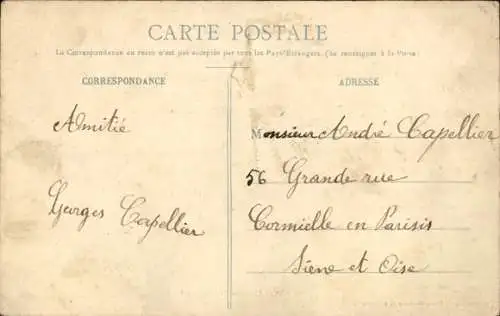 CARTE POSTALE
La Correspondance au recto n'est pas acceptée par tous les Pays Etrangers. (Se renseigner à la Poste)
CORRESPONDANCE
ADRESSE
Amitié
Georges Capellier
Monsieur André Capellier
56 Grande rue
Cormielle en Parisis
Siene et Oise